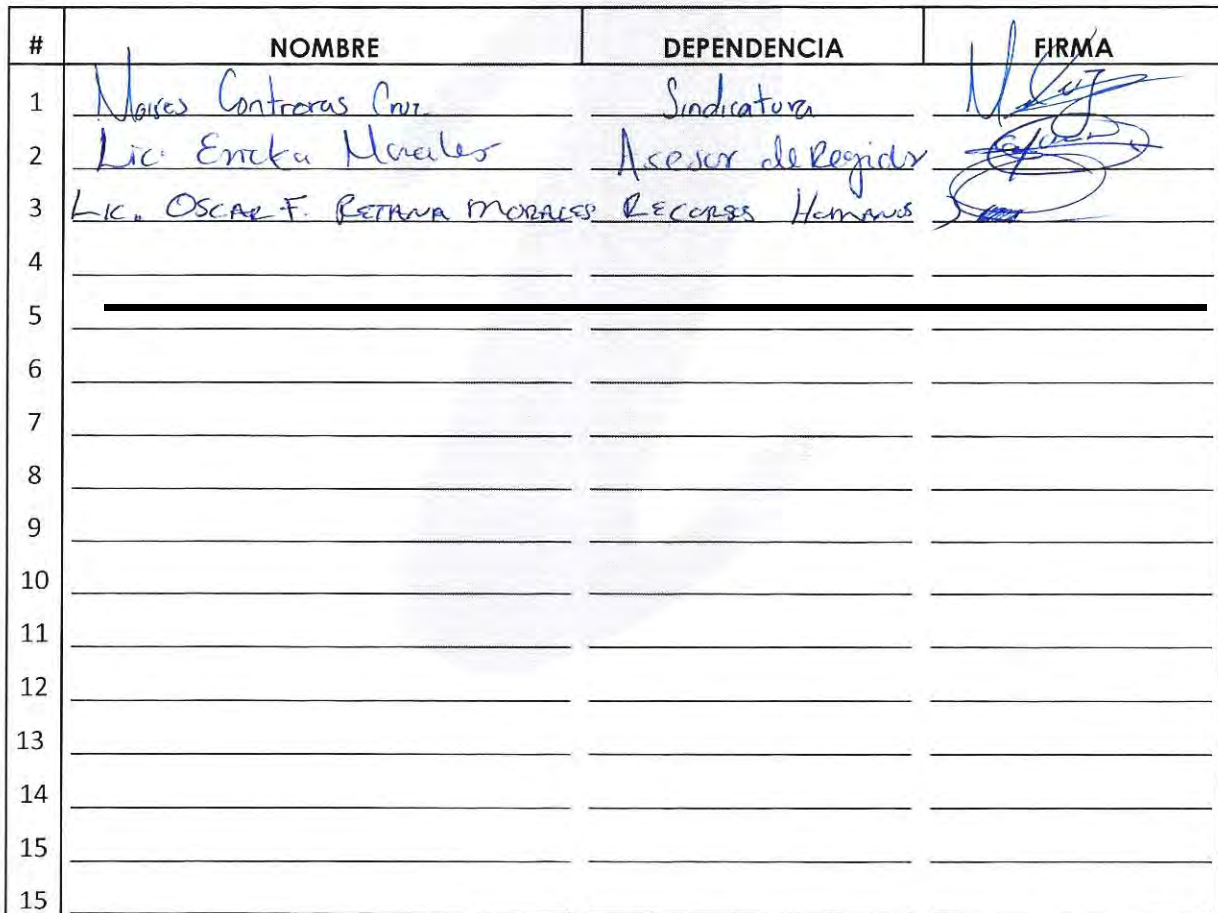 # NOMBRE DEPENDENCIA FIRMA
1 Moises Contreras Cruz Sindicatura
2 Lic. Ericka Morales Asesor de Regidor
3 LIC. OSCAR F. RETANA MORALES RECURSOS HUMANOS
4
5
6
7
8
9
10
11
12
13
14
15
15